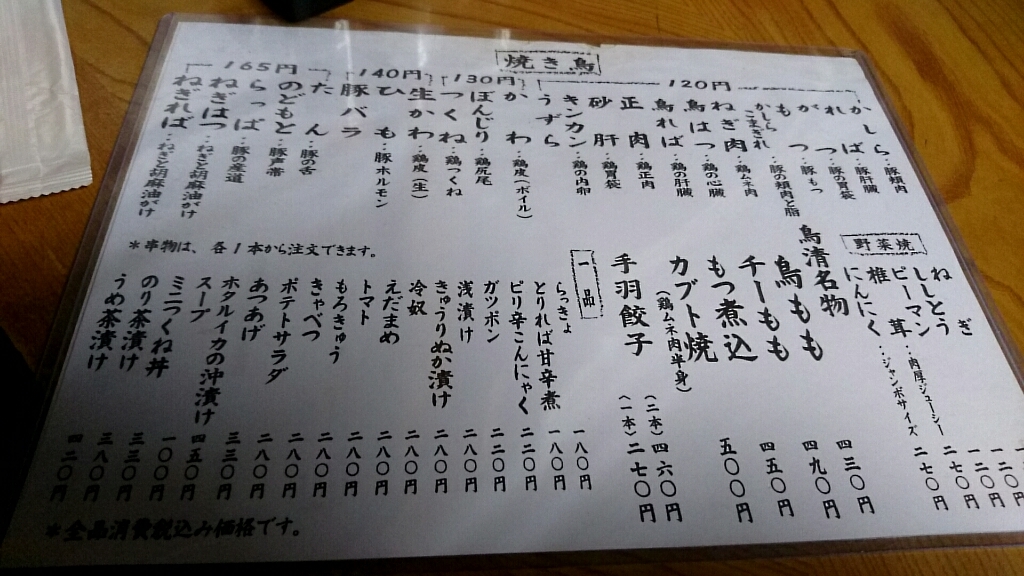 焼き鳥
120円
かしら・豚頬肉
れば・豚肝臓
がつ・豚の胃袋
もつ・豚もつ
かしらこまぎれ・豚の頬肉と脂
ねぎ肉・鶏ムネ肉
鳥はつ・鶏の心臓
鳥れば・鶏の肝臓
正肉・鶏正肉
砂肝・鶏胃袋
キンカン・鶏の内卵
うずら
130円
かわ・鶏皮(ボイル)
ぼんじり・鶏尻尾
つくね・鶏つくね
140円
生かわ・鶏皮(生)
ひも・豚ホルモン
豚バラ
165円
たん・豚の舌
のどもと・豚声帯
らっぱ・豚の産道
ねぎはつ・ねぎと胡麻油がけ
ねぎれば・ねぎと胡麻油がけ
*串物は、各1本から注文できます。
野菜焼
ねぎ 一二〇円
ししとう 一二〇円
ピーマン・肉厚ジューシー 一二〇円
椎茸・ジャンボサイズ 二七〇円
にんにく 二七〇円
鳥清名物
鳥もも 四三〇円
チーもも 四九〇円
もつ煮込 四五〇円
カブト焼 五〇〇円
(鶏ムネ肉半身)
手羽餃子 (二本)四六〇円
(一本)二七〇円
一品
らっきょ 一八〇円
とりれば甘辛煮 一八〇円
ピリ辛こんにゃく 二二〇円
ガツポン 二八〇円
浅漬け 二八〇円
きゅうりぬか漬け 二八〇円
冷奴 二八〇円
えだまめ 二八〇円
トマト 二八〇円
もろきゅう 二八〇円
きゃべつ 二八〇円
ポテトサラダ 二八〇円
あつあげ 三三〇円
ホタルイカの沖漬け 四五〇円
スープ 一〇〇円
ミニつくね丼 三三〇円
のり茶漬け 三八〇円
うめ茶漬け 四二〇円
*全品消費税込み価格です。